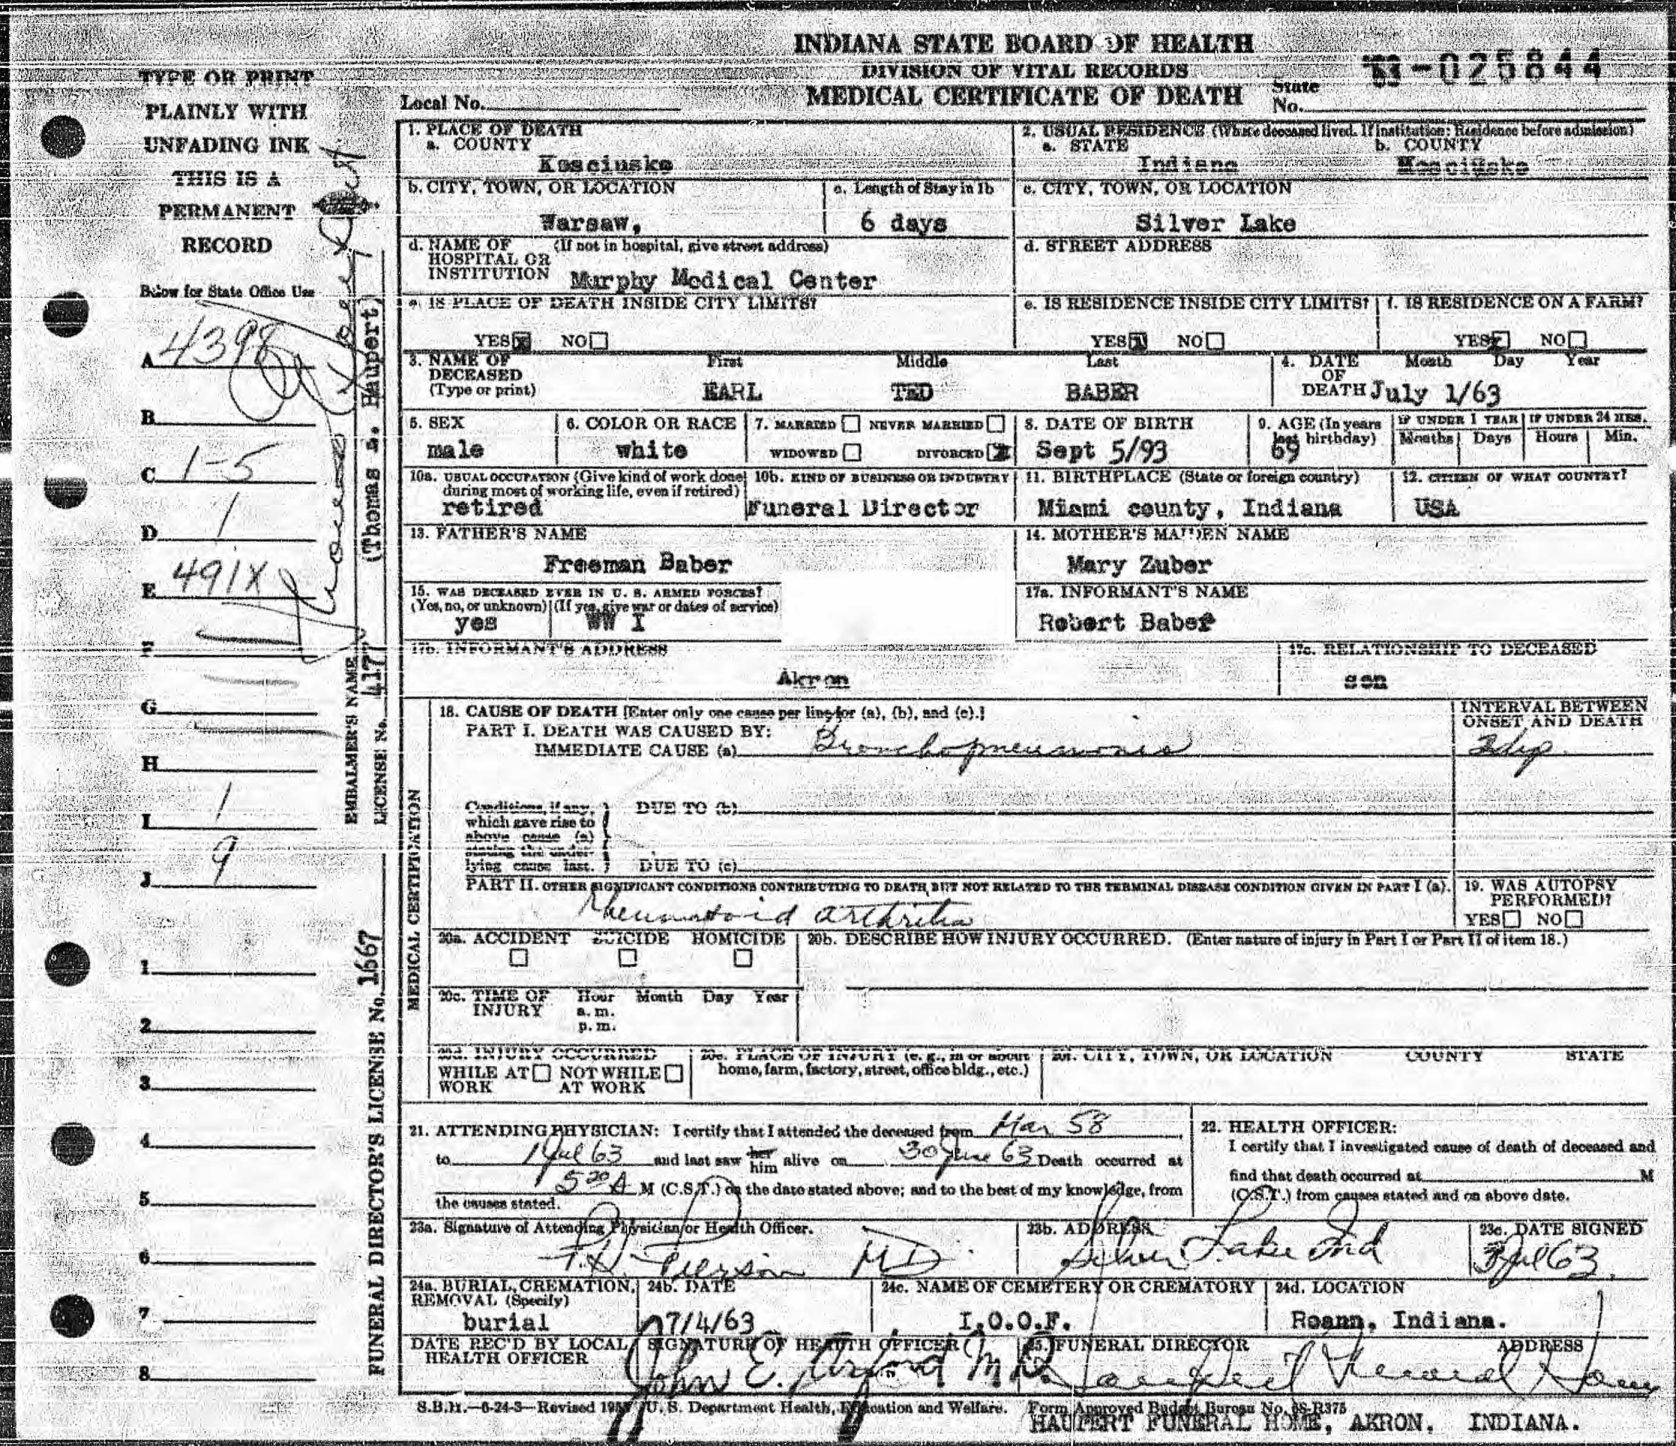 INDIANA STATE BOARD OF HEALTH
DIVISION OF VITAL RECORDS
MEDICAL CERTIFICATE OF DEATH
Local No.
State No. 63-025844
TYPE OR PRINT
PLAINLY WITH
UNFADING INK
THIS IS A
PERMANENT
RECORD
Below for State Office Use
A 4398
B
C 1-5
D 1
E 491X
F
G
H
I 1
J 9
1
2
3
4
5
6
7
8
EMBALMER'S NAME (Thomas S. Haupert)
LICENSE No. 4177
FUNERAL DIRECTOR'S LICENSE No. 1667
1. PLACE OF DEATH
a. COUNTY
Kosciusko
2. USUAL RESIDENCE (Where deceased lived. If institution: Residence before admission)
a. STATE b. COUNTY
Indiana Kosciusko
b. CITY, TOWN, OR LOCATION
Warsaw,
c. Length of Stay in 1b
6 days
c. CITY, TOWN, OR LOCATION
Silver Lake
d. NAME OF HOSPITAL OR INSTITUTION (If not in hospital, give street address)
Murphy Medical Center
d. STREET ADDRESS
e. IS PLACE OF DEATH INSIDE CITY LIMITS?
YES x NO
e. IS RESIDENCE INSIDE CITY LIMITS?
YES NO
f. IS RESIDENCE ON A FARM?
YES NO
3. NAME OF DECEASED (Type or print)
First Middle Last
EARL TED BABER
4. DATE OF DEATH Month Day Year
July 1/63
5. SEX
male
6. COLOR OR RACE
white
7. MARRIED NEVER MARRIED
WIDOWED DIVORCED x
8. DATE OF BIRTH
Sept 5/93
9. AGE (In years last birthday)
69
IF UNDER 1 YEAR IF UNDER 24 HRS.
Months Days Hours Min.
10a. USUAL OCCUPATION (Give kind of work done during most of working life, even if retired)
retired
10b. KIND OF BUSINESS OR INDUSTRY
Funeral Director
11. BIRTHPLACE (State or foreign country)
Miami county, Indiana
12. CITIZEN OF WHAT COUNTRY?
USA
13. FATHER'S NAME
Freeman Baber
14. MOTHER'S MAIDEN NAME
Mary Zuber
15. WAS DECEASED EVER IN U. S. ARMED FORCES?
(Yes, no, or unknown) (If yes, give war or dates of service)
yes WW I
17a. INFORMANT'S NAME
Robert Baber
17b. INFORMANT'S ADDRESS
Akron
17c. RELATIONSHIP TO DECEASED
son
MEDICAL CERTIFICATION
18. CAUSE OF DEATH [Enter only one cause per line for (a), (b), and (c).]
PART I. DEATH WAS CAUSED BY:
IMMEDIATE CAUSE (a) Bronchopneumonia
INTERVAL BETWEEN ONSET AND DEATH
Conditions, if any, which gave rise to above cause (a) stating the underlying cause last.
DUE TO (b)
DUE TO (c)
PART II. OTHER SIGNIFICANT CONDITIONS CONTRIBUTING TO DEATH BUT NOT RELATED TO THE TERMINAL DISEASE CONDITION GIVEN IN PART I (a).
Rheumatoid arthritis
19. WAS AUTOPSY PERFORMED?
YES NO
20a. ACCIDENT SUICIDE HOMICIDE
20b. DESCRIBE HOW INJURY OCCURRED. (Enter nature of injury in Part I or Part II of item 18.)
20c. TIME OF INJURY Hour Month Day Year
a. m.
p. m.
20d. INJURY OCCURRED
WHILE AT WORK NOT WHILE AT WORK
20e. PLACE OF INJURY (e. g., in or about home, farm, factory, street, office bldg., etc.)
20f. CITY, TOWN, OR LOCATION COUNTY STATE
21. ATTENDING PHYSICIAN: I certify that I attended the deceased from Mar 58
to 1 Jul 63 and last saw her him alive on 30 June 63 Death occurred at
5 20 A M (C.S.T.) on the date stated above; and to the best of my knowledge, from
the causes stated.
22. HEALTH OFFICER:
I certify that I investigated cause of death of deceased and
find that death occurred at M
(C.S.T.) from causes stated and on above date.
23a. Signature of Attending Physician or Health Officer.
Pierson MD
23b. ADDRESS
Silver Lake Ind
23c. DATE SIGNED
3 Jul 63
24a. BURIAL, CREMATION, REMOVAL (Specify)
burial
24b. DATE
7/4/63
24c. NAME OF CEMETERY OR CREMATORY
I.O.O.F.
24d. LOCATION
Roann, Indiana.
DATE REC'D BY LOCAL HEALTH OFFICER
SIGNATURE OF HEALTH OFFICER
John E. M.D.
25. FUNERAL DIRECTOR ADDRESS
Haupert Funeral Home
S.B.H.—6-24-3—Revised U. S. Department Health, Education and Welfare. Form Approved Budget Bureau No. 68-R375
HAUPERT FUNERAL HOME, AKRON, INDIANA.